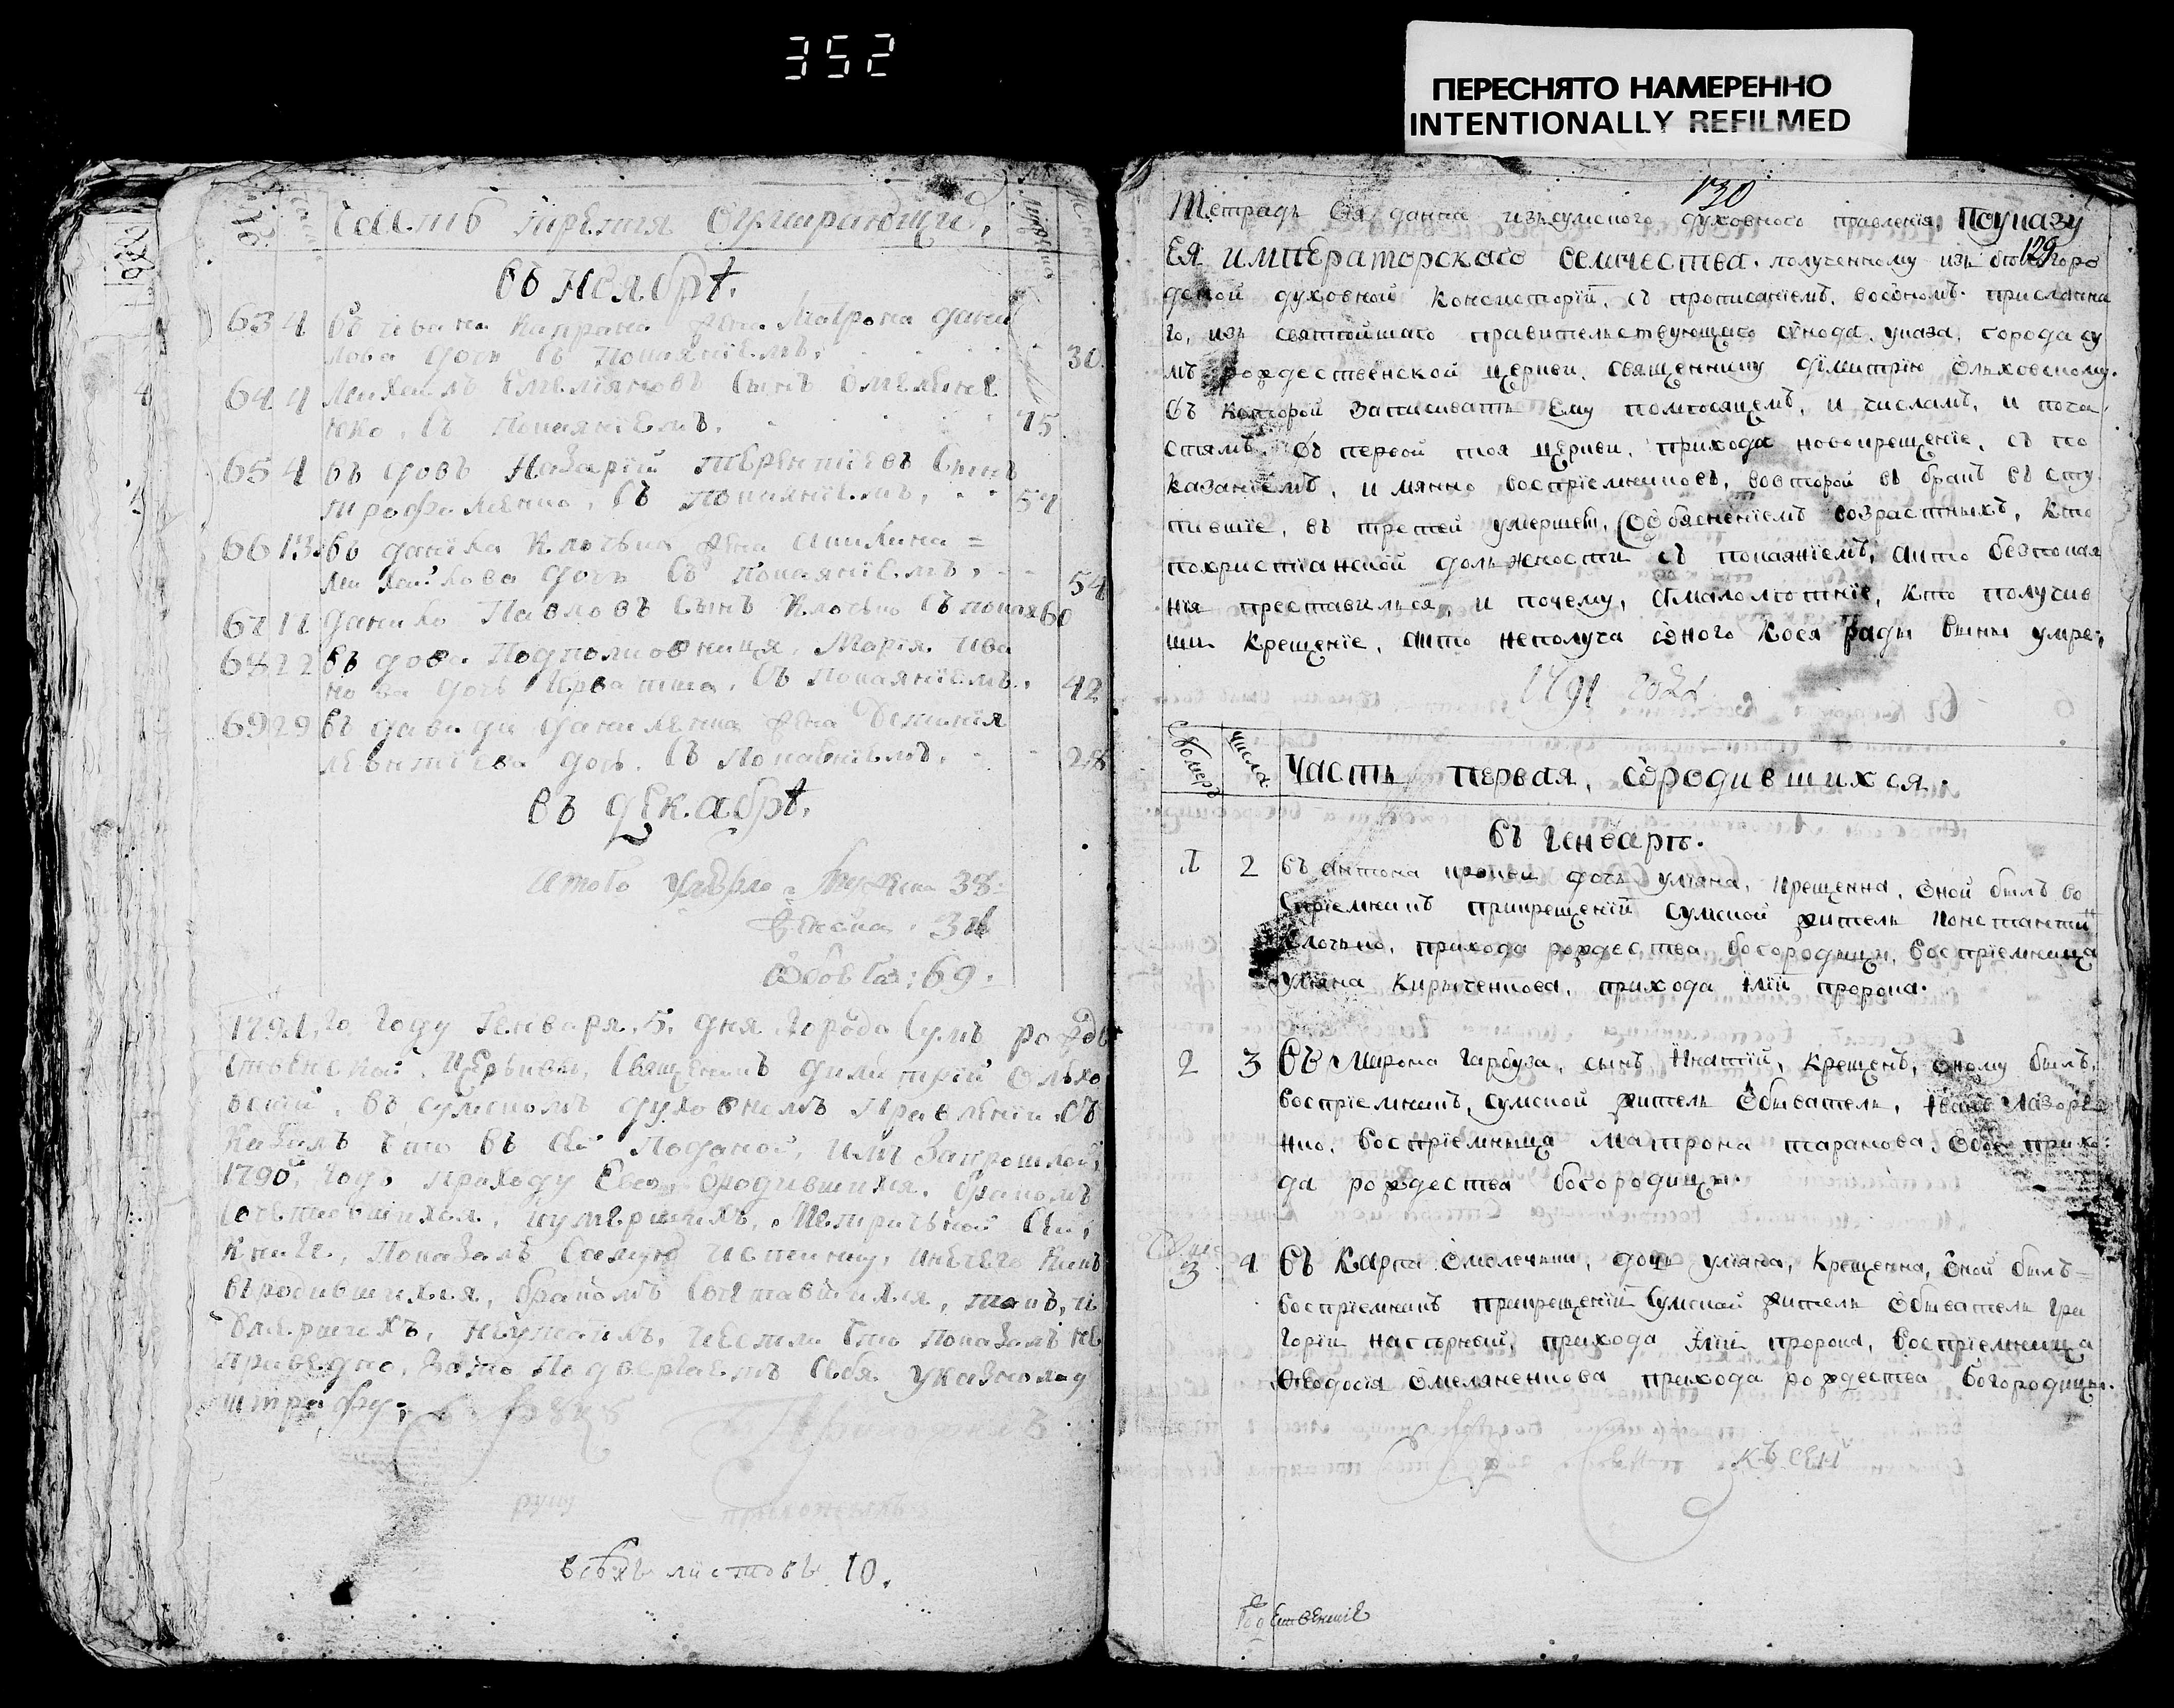 352
ПЕРЕСНЯТО НАМЕРЕННО
INTENTIONALLY REFILMED
Часть третія Оумирающи,
въ Ноябрѣ.
63 4 въ ивана жена Матрона дани
лова дочь съ Покаянїемъ. 30
64 4 Михаилъ Емелїяновъ Сынъ Омелене
нко, съ Покаянїемъ. 75
65 4 въ довъ Назарїй Терентїевъ Сынъ
трофименко, съ Покаянїемъ, 57
66 13 въ данїла Клочька жена =
михайлова дочь съ Покаянїемъ, 54
67 11 данило Павловъ Сынъ Клочько съ покая 60
68 22 въ дова Подполковница, Марїя ива
нова дочь съ Покаянїемъ. 42
69 29 въ давида даниленка жена
леонтїева дочь. съ Покаянїемъ. 28
въ декабрѣ.
Итого Умерло: Мужска 38:
Женска. 31
Обоегоъ: 69.
1791, го году Генваря, 5, дня города Сумъ рожде
ственской, Церькви, Священикъ димитрїй Ольхо
вскїй, въ сумскомъ духовномъ Правленїи съ
казалъ что въ сей Поданой, имъ Запрошлой,
1790, годъ приходу Его, Ородившихся, бракомъ
сочетавшихся, иумершихъ, Метричьной Сей,
книге, Показалъ истинну, инечего какъ
ородившихся, бракомъ Сочетавшихся, такъ, и
Оумершихъ, неутаилъ, иестли что Показалъ не
праведно, зато Подвергаетъ Себя указному
штрафу;
руку
приложилъ
всѣхъ листовъ 10.
130
Тетрадь Сія дана изъсумского духовного правленїя, Поуказу
129
ЕЯ ИМПЕРАТОРСКАГО Величества. полученному изъ бѣлогоро
дской духовной Консисторїи, съ прописанїемъ, восономъ присланна
го, изъ святѣйшаго правительствующаго сѵнода, указа, города су
мъ рождественской церкви, священнику димитрїю Ольховскому.
въ которой Записивать Ему помѣсяцемъ, и числамъ, и поча
стямъ, въ первой тоя церкви, прихода новокрещенїе, съ по
казанїемъ, и мянно воспрїемниковъ, вовторой въ бракъ въ сту
пившїе, въ третей умершей, Собясненїемъ возрастныхъ, кто
похристїанской должности съ покаянїемъ, акто безпокая
нїя преставилься, и почему, Ималолѣтнїе, кто получив
ши Крещенїе, акто неполуча оного Коея ради вины умре,
1791 года
Номеръ Числа Часть первая, Ородившихся.
въ Генварѣ.
1 2 въ антона дочь улїяна, крещенна, оной былъ во
спрїемникъ прикрещенїй Сумской житель Константи
Клочько, прихода рождества богородици, воспрїемница
улїяна Кириченкова, прихода Ілїи пророка.
2 3 Въ Мирона Гарбуза, сынъ Ігнатїй, Крещенъ, оному былъ,
воспрїемникъ, сумской житель Обыватель, Іванъ Лазоре
нко, воспрїемница Матрона таранова, Обое прихо
да рождества богородици.
3 4 Въ Карпа Омолечьки, дочь улїяна, Крещенна, Оной былъ=
воспрїемникъ прикрещенїй Сумской житель Обыватель гри
горїи Нагорный, прихода Ілїи пророка, воспрїемница
Ѳеодосїя Омеляненкова прихода рождества богородици.
къ сей